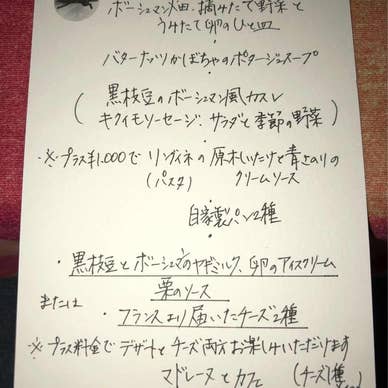 ボーシュマン畑、摘みたて野菜と
うみたて卵のひと皿
・
バターナッツかぼちゃのポタージュスープ
・
(黒枝豆のボーシュマン風カスレ
キクイモソーセージ、サラダと季節の野菜)
※プラス¥1,000で リングイネの原木しいたけと青さのりの
(パスタ) クリームソース
・
自家製パン2種
・
・黒枝豆とボーシュマンのヤギミルク、卵のアイスクリーム
栗のソース
または
・フランスより届いたチーズ2種
※プラス料金でデザートとチーズ両方お楽しみいただけます
(チーズ1種
マドレーヌとカフェ